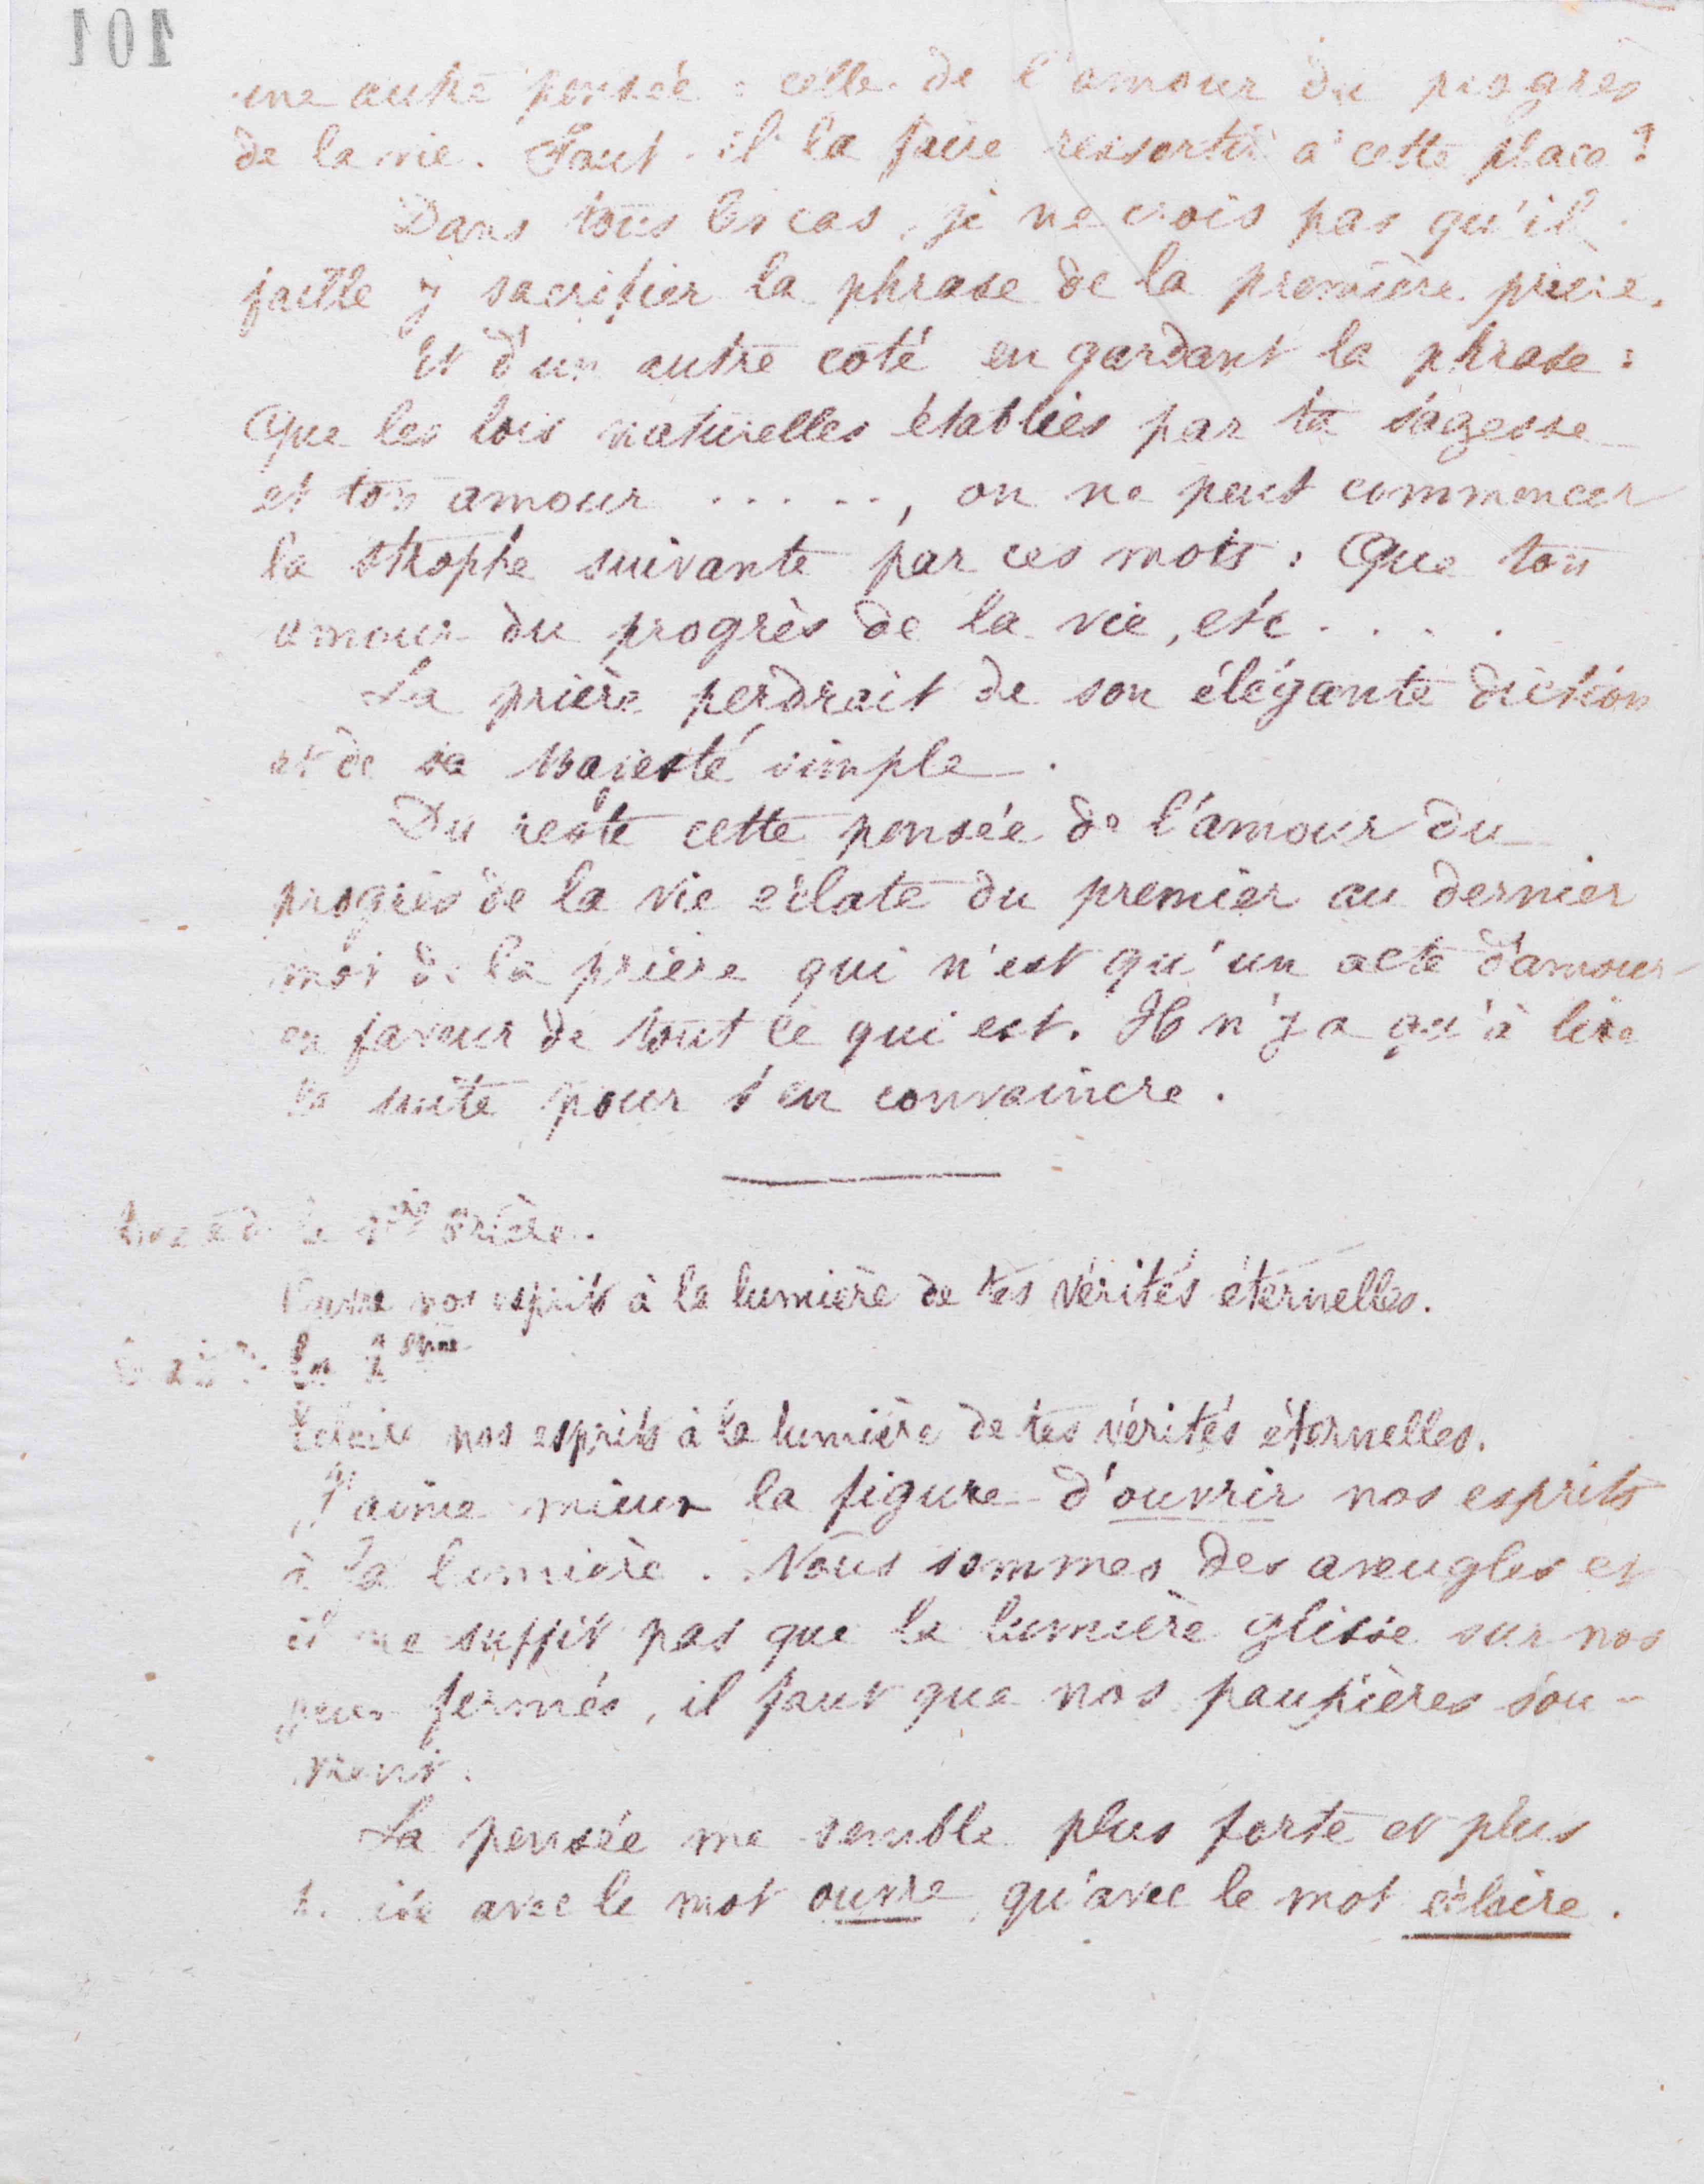 101
une autre pensée : celle de l'amour du progrès
de la vie. Faut-il la faire ressortir à cette place ?
Dans tous les cas, je ne crois pas qu'il
faille y sacrifier la phrase de la première prière.
Et d'un autre coté en gardant la phrase :
Que les lois naturelles établies par ta sagesse
et ton amour ....., on ne peut commencer
la strophe suivante par ces mots : Que ton
amour du progrès de la vie, etc ....
La prière perdrait de son élégante diction
et de sa majesté simple.
Du reste cette pensée de l'amour du
progrès de la vie éclate du premier au dernier
mot de la prière qui n'est qu'un acte d'amour
en faveur de tout ce qui est. Il n'y a qu'à lire
la suite pour s'en convaincre.
la 1ère Prière.
Ouvre nos esprits à la lumière de tes vérités éternelles.
la 2ème
Eclaire nos esprits à la lumière de tes vérités éternelles.
J'aime mieux la figure d'ouvrir nos esprits
à la lumière. Nous sommes des aveugles et
il ne suffit pas que la lumière glisse sur nos
yeux fermés, il faut que nos paupières s'ou-
vrent.
La pensée me semble plus forte et plus
avec le mot ouvre qu'avec le mot éclaire.